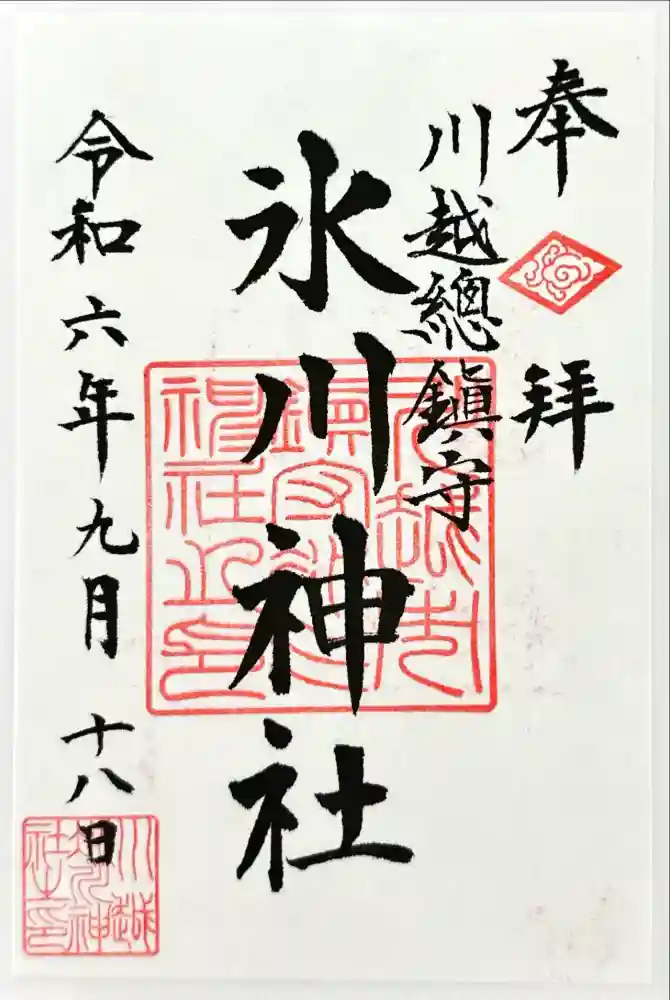 奉拝
川越總鎮守
氷川神社
令和六年九月十八日